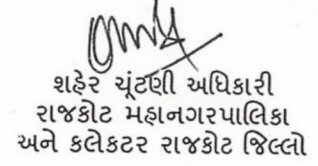 શહેર ચૂંટણી અધિકારી
રાજકોટ મહાનગરપાલિકા
અને કલેક્ટર રાજકોટ જિલ્લો